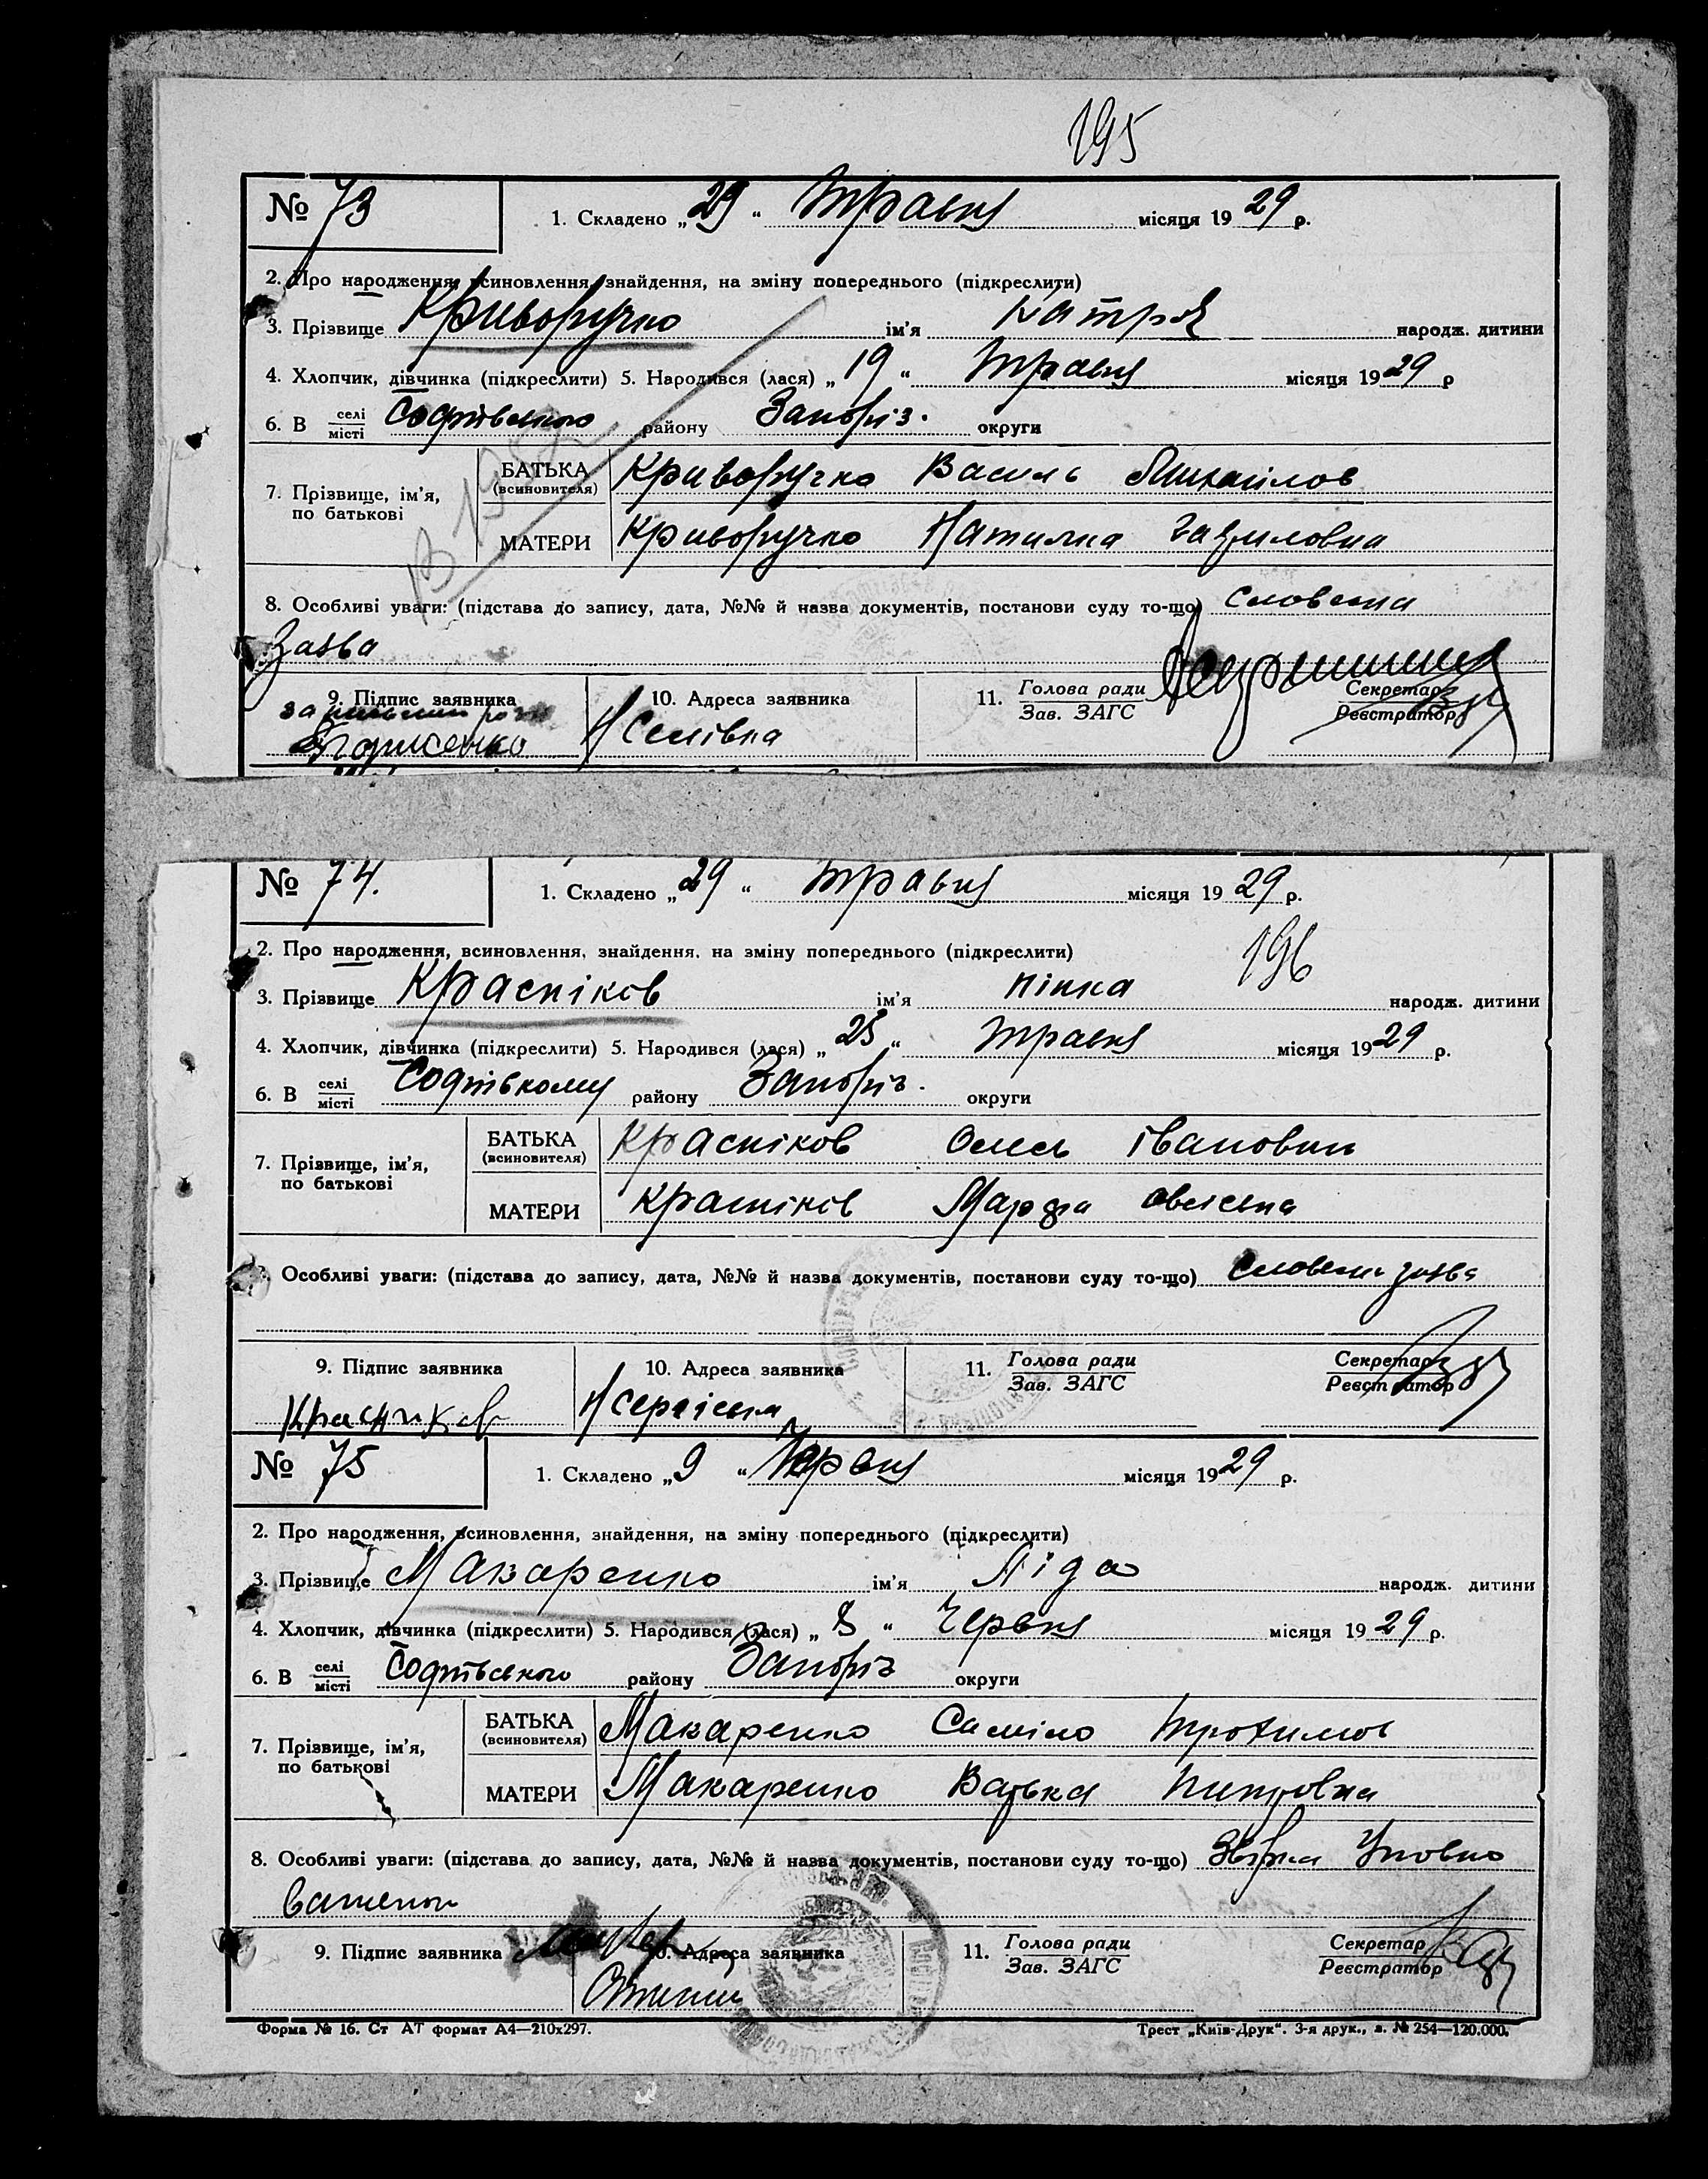 195
№ 73 1. Складено „29“ Травня місяця 1929 р.
2. Про народження, всиновлення, знайдення, на зміну попереднього (підкреслити)
3. Прізвище Криворучко ім'я Катря народж. дитини
4. Хлопчик, дівчинка (підкреслити) 5. Народився (лася) „19“ Травня місяця 1929 р
6. В селі місті Софіївського району Запоріз. округи
7. Прізвище, ім'я, по батькові
БАТЬКА (всиновителя) Криворучко Василь Михайлов
МАТЕРИ Криворучко Наталка
8. Особливі уваги: (підстава до запису, дата, №№ й назва документів, постанови суду то-що) словесна
Заява
9. Підпис заявника 10. Адреса заявника 11. Голова ради Зав. ЗАГС Секретар Реєстратор
№ 74. 1. Складено „29“ Травня місяця 1929 р.
2. Про народження, всиновлення, знайдення, на зміну попереднього (підкреслити) 196
3. Прізвище Красніков ім'я Нінка народж. дитини
4. Хлопчик, дівчинка (підкреслити) 5. Народився (лася) „25“ Травня місяця 1929 р.
6. В селі місті Софіївкому району Запоріз. округи
7. Прізвище, ім'я, по батькові
БАТЬКА (всиновителя) Красніков Олесь Іванович
МАТЕРИ Красніков Марфа
Особливі уваги: (підстава до запису, дата, №№ й назва документів, постанови суду то-що) Словесна заява
9. Підпис заявника 10. Адреса заявника 11. Голова ради Зав. ЗАГС Секретар Реєстратор
Красников
№ 75 1. Складено „9“ Червня місяця 1929 р.
2. Про народження, всиновлення, знайдення, на зміну попереднього (підкреслити)
3. Прізвище Макаренко ім'я Ліда народж. дитини
4. Хлопчик, дівчинка (підкреслити) 5. Народився (лася) „8“ Червня місяця 1929 р.
6. В селі місті Софіївського району Запоріз округи
7. Прізвище, ім'я, по батькові
БАТЬКА (всиновителя) Макаренко Саміло Трохимов
МАТЕРИ Макаренко Варька Петровна
8. Особливі уваги: (підстава до запису, дата, №№ й назва документів, постанови суду то-що)
9. Підпис заявника 10. Адреса заявника 11. Голова ради Зав. ЗАГС Секретар Реєстратор
Форма № 16. Ст АТ формат А4—210х297. Трест „Київ-Друк“. 3-я друк., з. № 254—120.000.